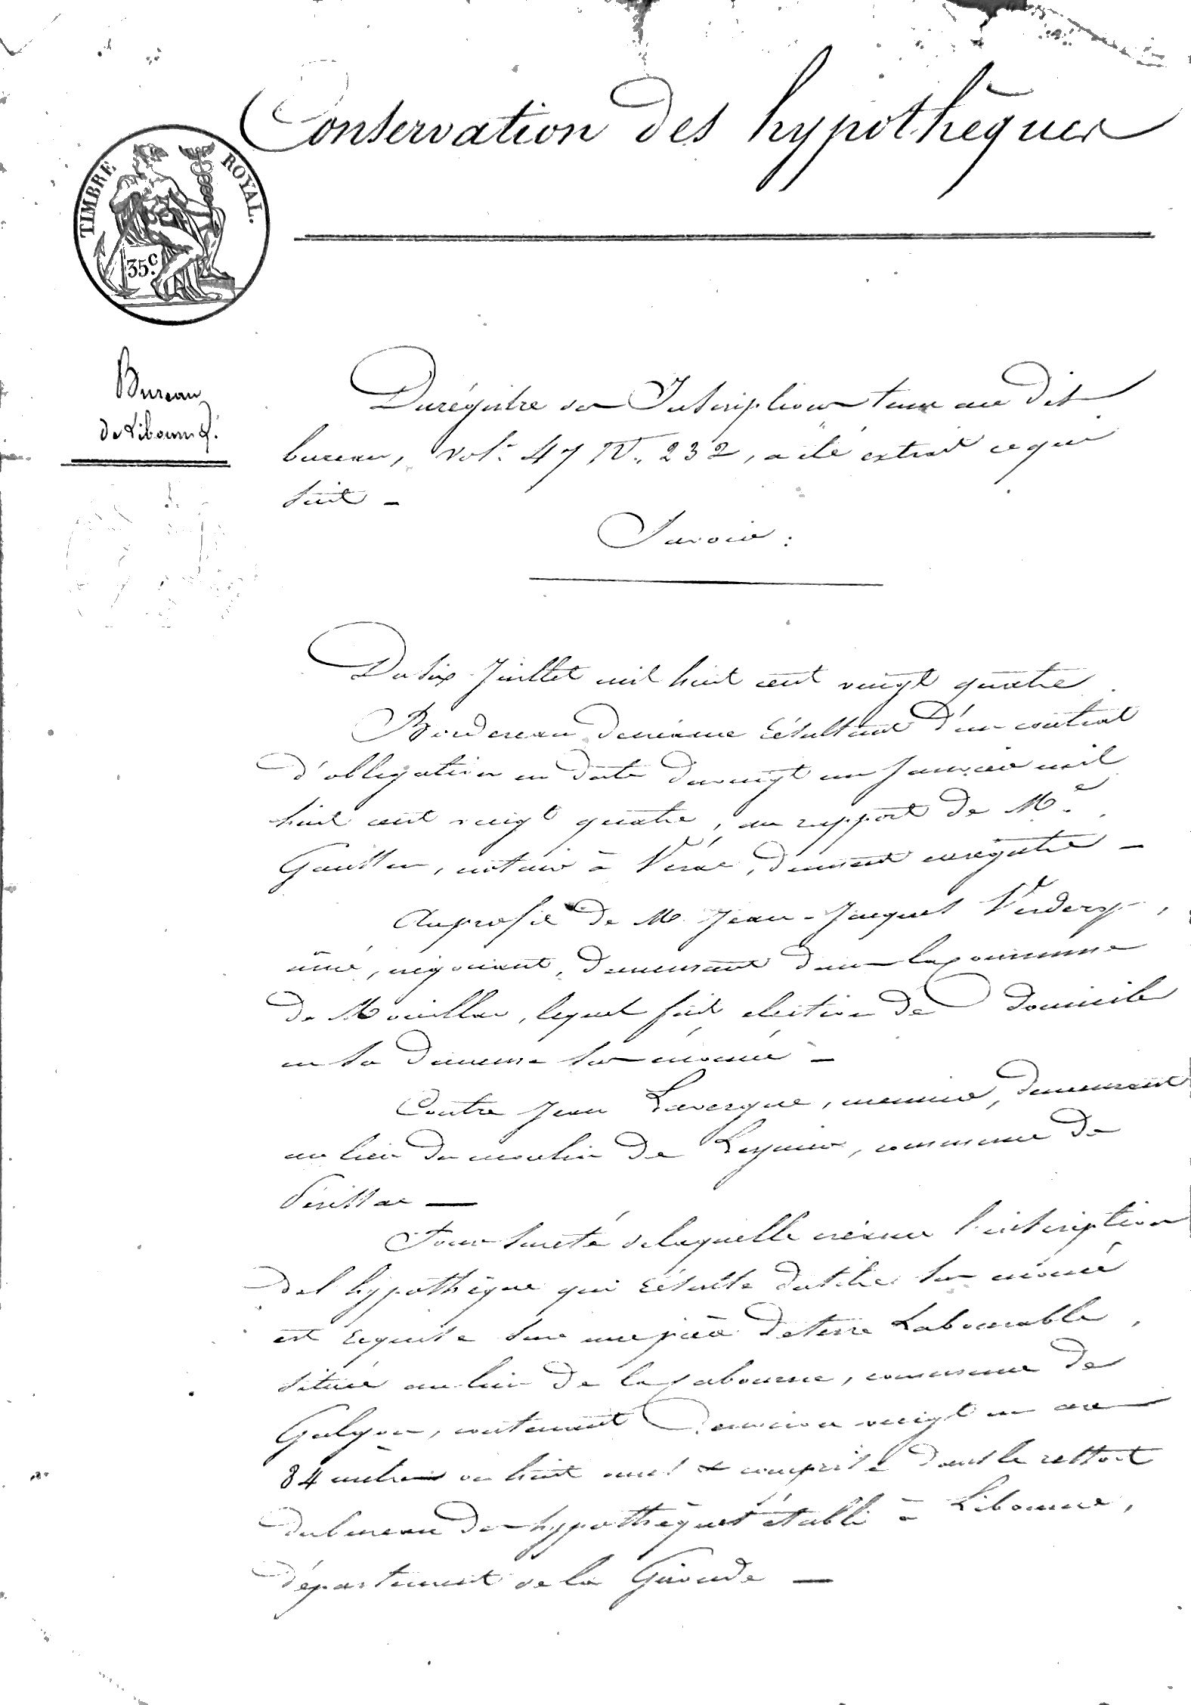 Conservation des hypothèques
TIMBRE ROYAL.
35c.
Bureau
de Libourne
Du régistre des Inscriptions tenu au dit
bureau, vol. 47 N. 232, a été extrait ce qui
suit -
Savoir :
Du six Juillet mil huit cent vingt quatre
Bordereau de créance résultant d'un contrat
d'obligation en date du vingt un Janvier mil
huit cent vingt quatre, au rapport de Me
notaire à Vérac, duement enregistré -
Au profit de M. Jean-Jacques Verdery,
ainé, négociant, demeurant dans la commune
de Mouillac, lequel fait election de domicile
en sa demeure sus énoncée -
Contre Jean Lavergne, meunier, demeurant
au lieu du moulin de commune de
Périssac —
Pour sureté de laquelle créance l'inscription
de l'hypothèque qui résulte du titre sus énoncé
est requise sur une pièce de terre Labourable,
située au lieu de commune de
Galgon, contenant environ vingt un ares
84 mètres ou huit et comprise dans le ressort
du bureau des hypothèques établi à Libourne,
département de la Gironde —